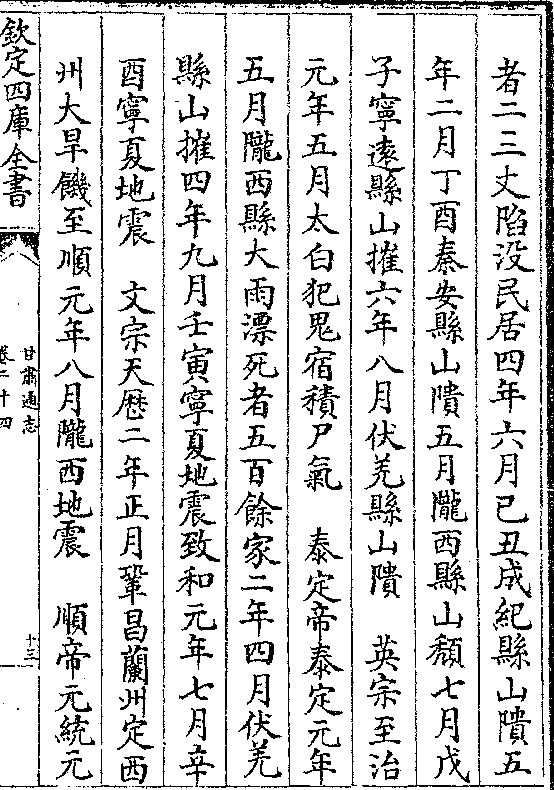 者二三丈陷没民居四年六月己丑成紀縣山隤五
年二月丁酉秦安縣山隤五月隴西縣山頽七月戊
子寧逺縣山摧六年八月伏羌縣山隤　英宗至治
元年五月太白犯鬼宿積尸氣　泰定帝泰定元年
五月隴西縣大雨漂死者五百餘家二年四月伏羌
縣山摧四年九月壬寅寧夏地震致和元年七月辛
酉寧夏地震　文宗天歴二年正月鞏昌蘭州定西
州大旱饑至順元年八月隴西地震　順帝元統元
欽定四庫全書
甘肅通志
卷二十四
十三